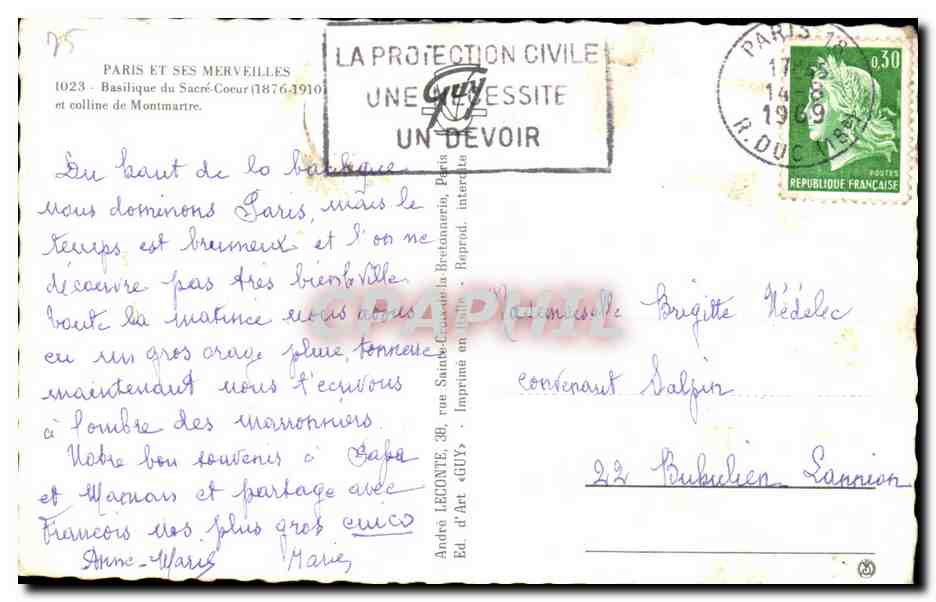 75
PARIS ET SES MERVEILLES
1023 - Basilique du Sacré-Coeur (1876-1910)
et colline de Montmartre.
LA PROTECTION CIVILE
UNE NECESSITE
UN DEVOIR
Guy
PARIS 18
17H
14-8
1969
R. DUC (18E)
0,30
POSTES
REPUBLIQUE FRANÇAISE
Du haut de la basilique
nous dominons Paris, mais le
temps est brumeux et l'on ne
découvre pas très bien la Ville
toute la matinée nous avons
eu un gros orage pluie, tonnerre
maintenant nous t'écrivons
à l'ombre des marronniers.
Notre bon souvenir à Papa
et Maman et partage avec
François nos plus gros
Anne-Marie Marie
André LECONTE, 38, rue Sainte-Croix-de-la-Bretonnerie, Paris
Ed. d'Art «GUY» - Imprimé en Italie - Reprod. interdite
Mademoiselle Brigitte Nédelec
convenant
22 Lannion
CPAPHIL